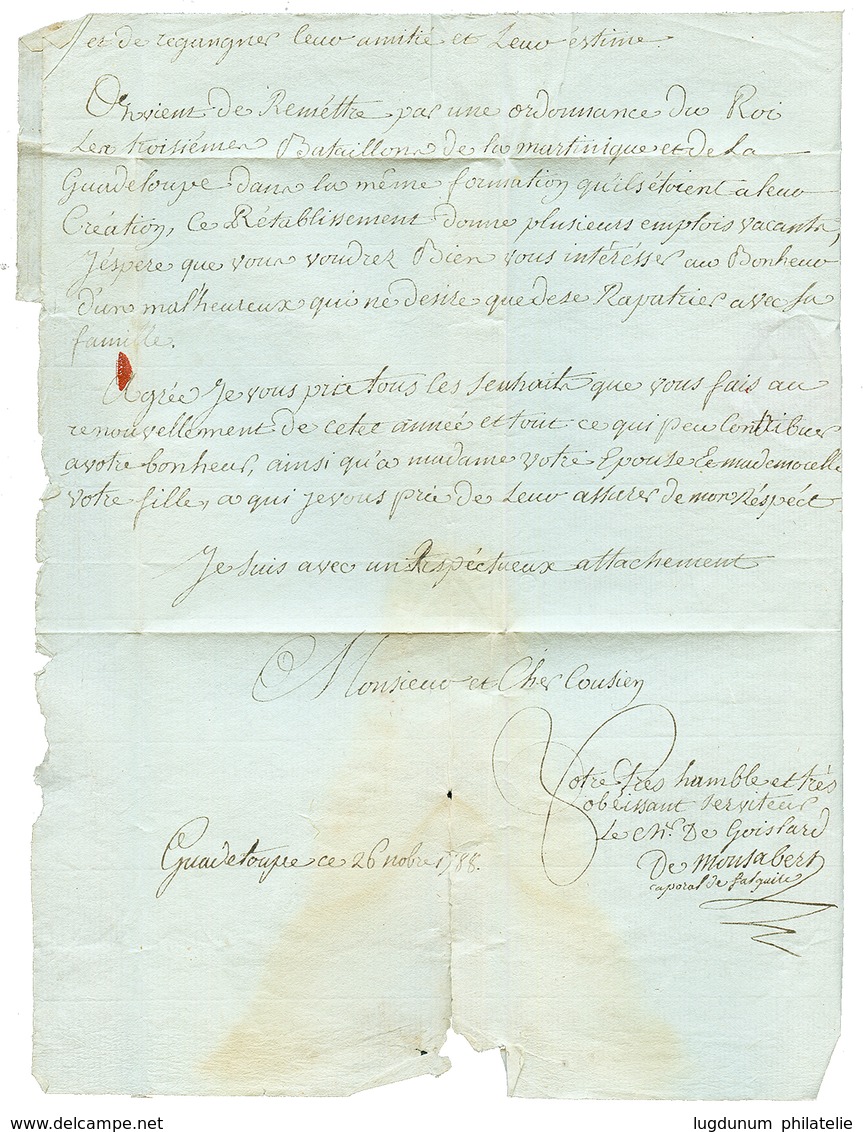 et de regangner leur amitié et Leur estime.
On vient de Remèttre par une ordonnance du Roi
Les troisiémes Bataillons de la martinique et de La
Guadeloupe dans la même formation qu'ils étoient a leur
Création, Ce Rétablissement donne plusieurs emplois vacants,
J'éspere que vous voudrez Bien vous intérésser au Bonheur
d'un mal'heureux qui ne desire que de se Rapatrier avec sa
famille.
Agrée Je vous prie tous les souhaits que vous fais au
renouvellement de cete année et tout ce qui peu Contribuer
a votre bonheur, ainsi qu'a madame votre Epouse Et mademoiselle
votre fille, a qui je vous prie de Leur assurer de mon Réspéct
Je suis avec un Réspéctueux attachement
Monsieur et Cher Cousien
Votre trés humble et trés
obeissant serviteur
Le Ch. De Goislard
De Monsabert
caporal de
Guadeloupe ce 26 nobre 1788.
www.delcampe.net
lugdunum philatelie